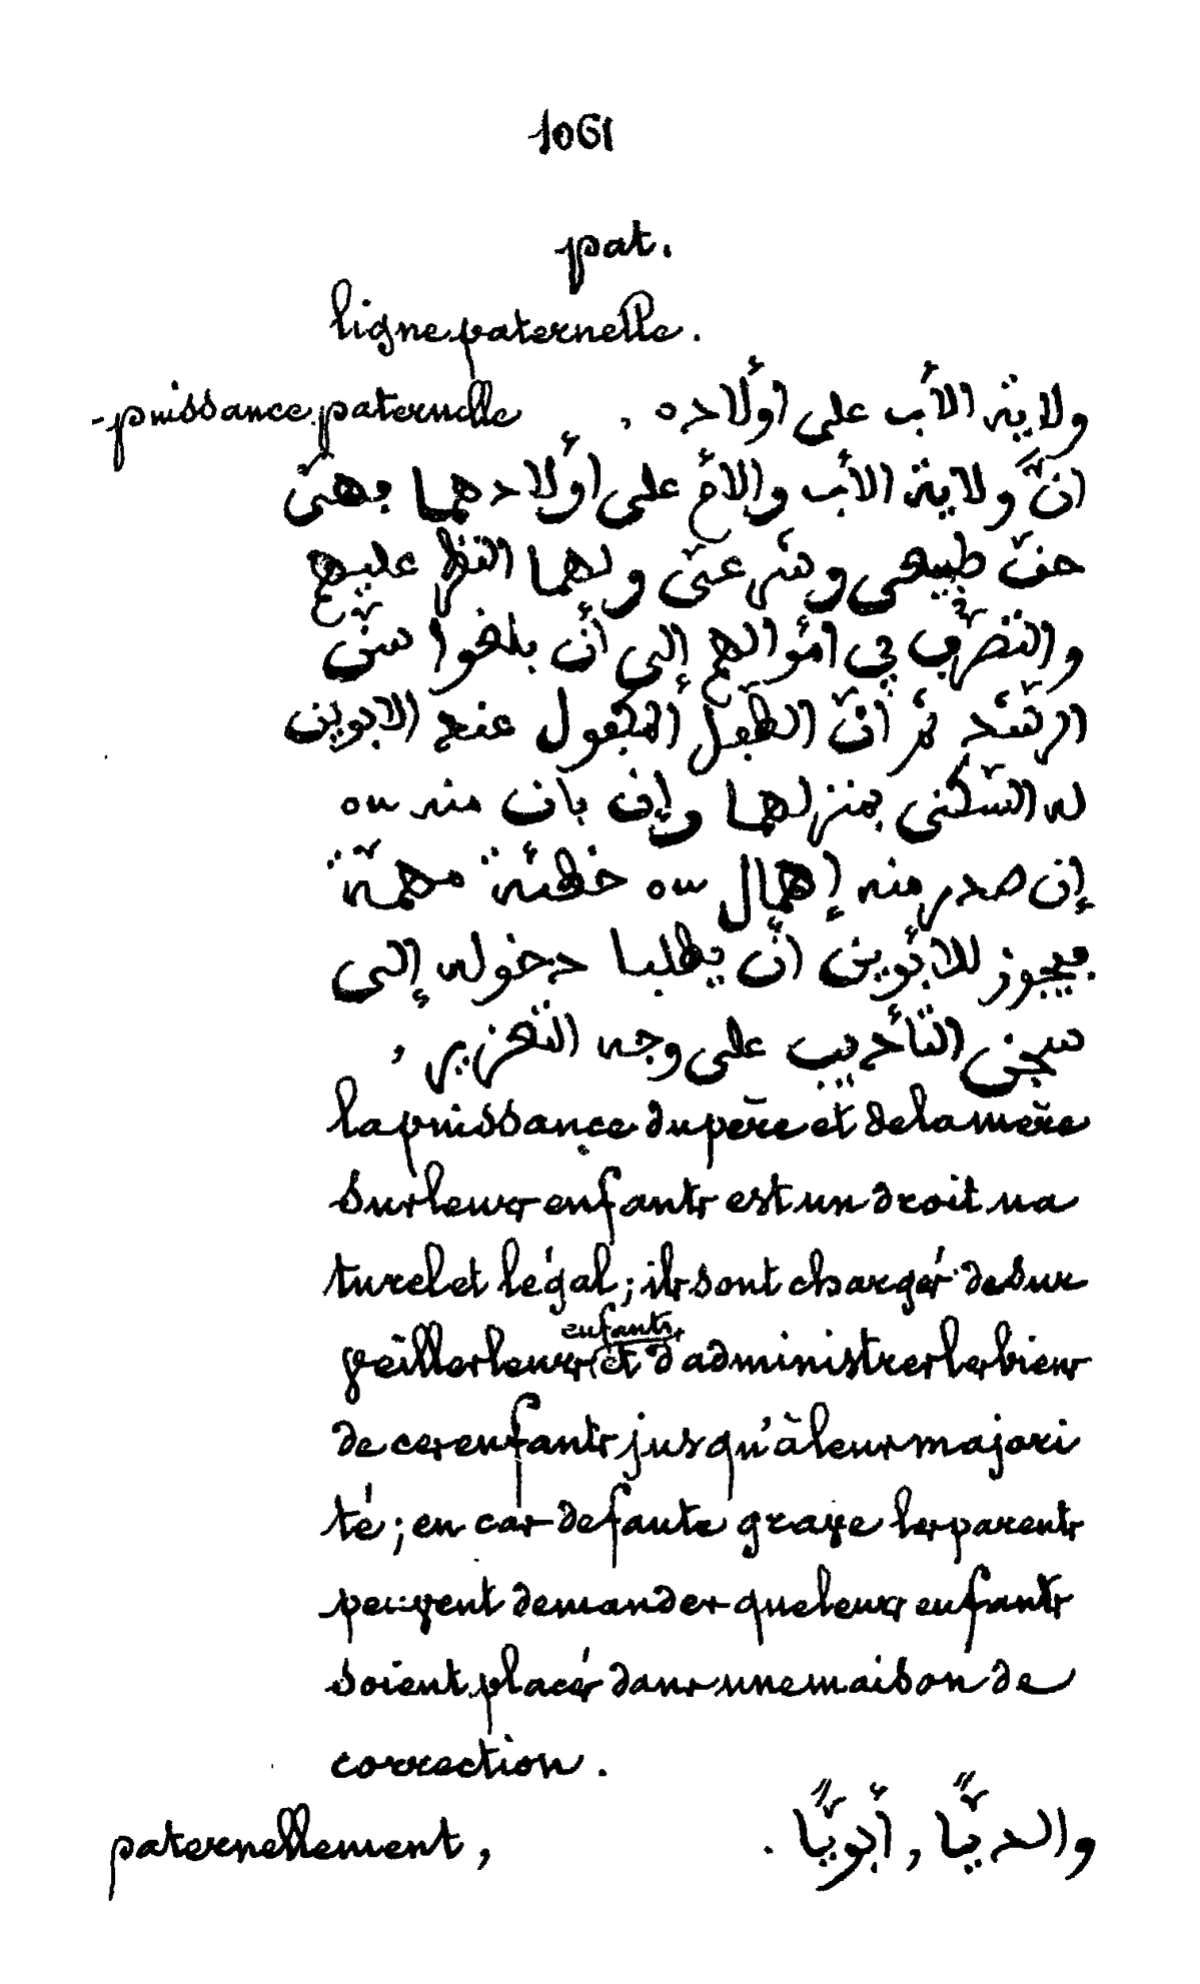 1061
pat.
ligne paternelle.
- puissance paternelle , ولاية الأب على أولاده
انّ ولاية الأب والأمّ على أولادهما فهي
حقّ طبيعي وشرعيّ ولهما النّظر عليهم
والتّصرّف في أموالهم إلى أن يلغوا سنّ
الرّشد ثمّ أنّ الطّفل المكفول عند الابوين
له السّكنى بمنزلهما وإن بان منه سوء
إن صدر منه إهمال سوء خطئة مهمّة
فيجوز للأبوين أن يطلبا دخوله إلى
سجن التّأديب على وجه التّعزير ,
la puissance du père et de la mère
sur leurs enfants est un droit na
turel et légal ; ils sont chargés de sur
veiller leurs enfants et d'administrer les biens
de ces enfants jusqu'à leur majori
té ; en cas de faute grave les parents
peuvent demander que leurs enfants
soient placés dans une maison de
correction .
paternellement , والديًّا , أبويًّا .